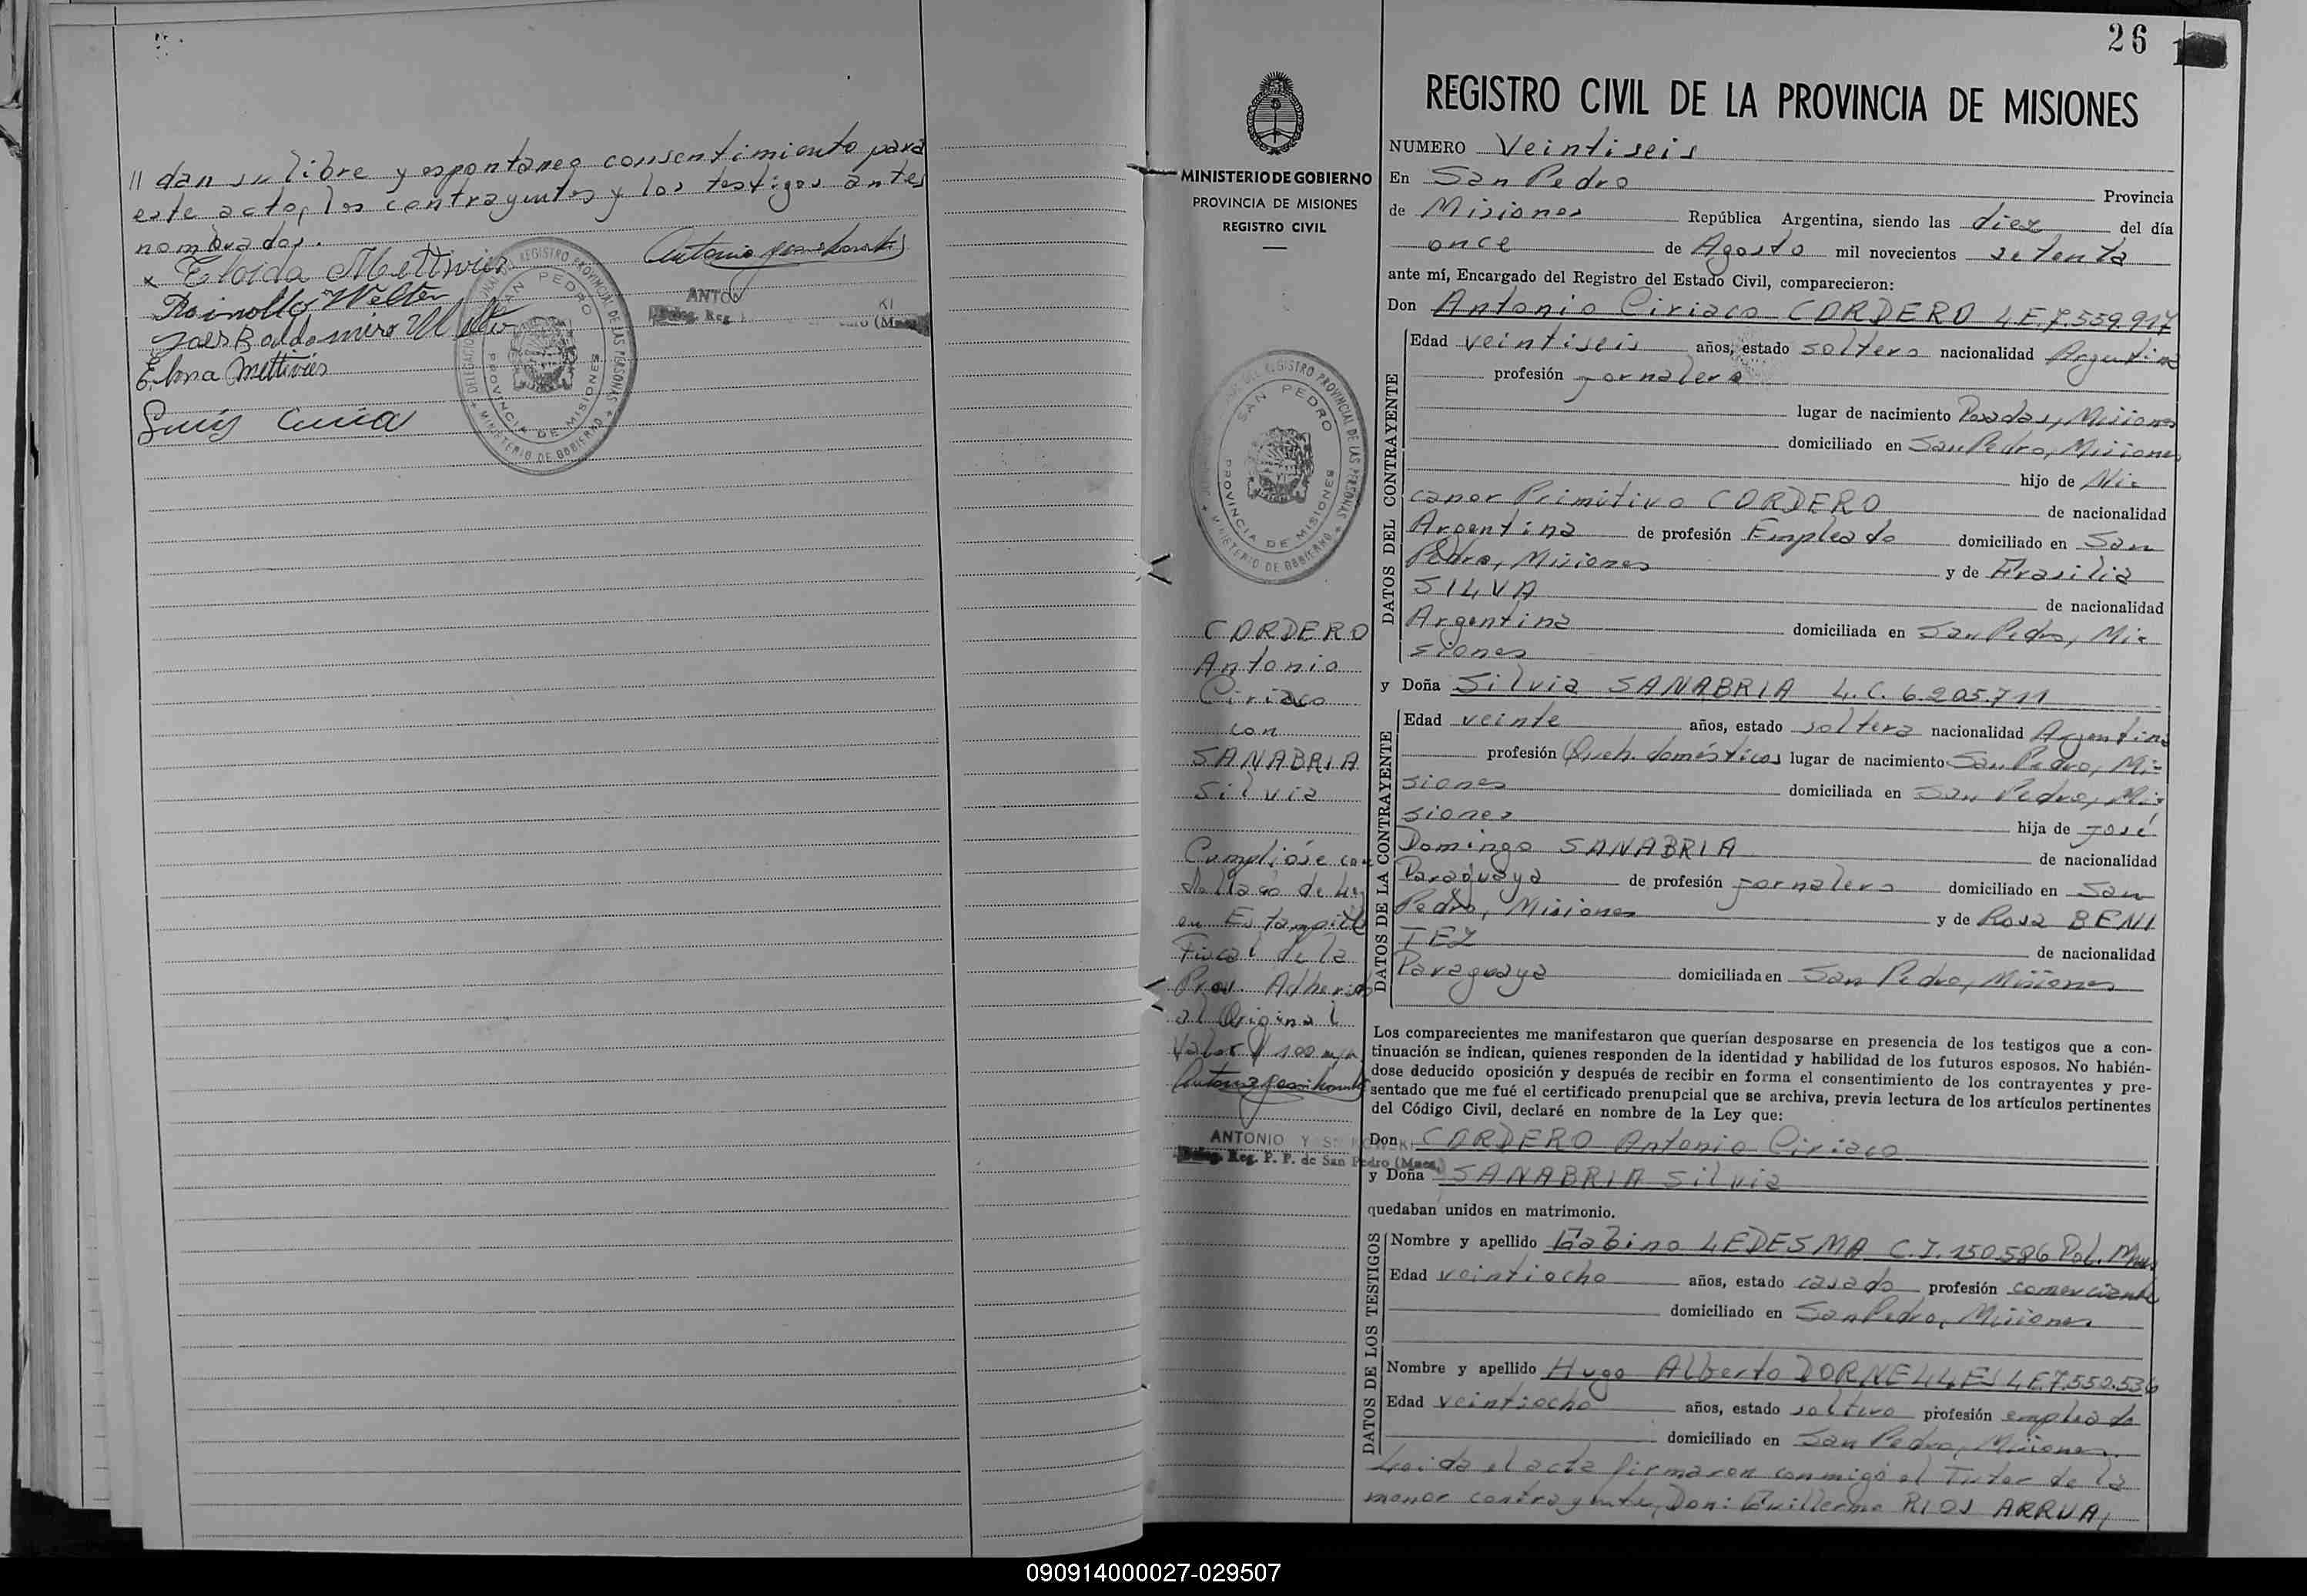 // dan su libre y espontaneo consentimiento para
este acto, los contrayentes y los testigos antes
nombrados.
x Eloida Mettivier
Elma Mettivies
Luis
DELEGACION REGISTRO PROVINCIAL DE LAS PERSONAS
MINISTERIO DE GOBIERNO
SAN PEDRO
PROVINCIA DE MISIONES
26
MINISTERIO DE GOBIERNO
PROVINCIA DE MISIONES
REGISTRO CIVIL
REGISTRO PROVINCIAL DE LAS PERSONAS
MINISTERIO DE GOBIERNO
SAN PEDRO
PROVINCIA DE MISIONES
CORDERO
Antonio
Ciriaco
con
SANABRIA
Silvia
Cumplióse con
de Ley
en Estampilla
Fiscal de la
Prov. Adherida
al Original
Valor $ 100 m/n
ANTONIO Y
Deleg. Reg. P. P. de San Pedro (Mnes.)
REGISTRO CIVIL DE LA PROVINCIA DE MISIONES
NUMERO Veintiseis
En San Pedro Provincia
de Misiones República Argentina, siendo las diez del día
once de Agosto mil novecientos setenta
ante mí, Encargado del Registro del Estado Civil, comparecieron:
Don Antonio Ciriaco CORDERO L.E. 7.559.917
DATOS DEL CONTRAYENTE
Edad veintiseis años, estado soltero nacionalidad Argentina
profesión jornalero
lugar de nacimiento Posadas, Misiones
domiciliado en San Pedro, Misiones
hijo de Ni-
canor Primitivo CORDERO de nacionalidad
Argentina de profesión Empleado domiciliado en San
Pedro, Misiones y de Brasilia
SILVA de nacionalidad
Argentina domiciliada en San Pedro, Mi-
siones
y Doña Silvia SANABRIA L.C. 6.205.711
DATOS DE LA CONTRAYENTE
Edad veinte años, estado soltera nacionalidad Argentina
profesión Queh. domésticos lugar de nacimiento San Pedro, Mi-
siones domiciliada en San Pedro, Mi-
siones hija de José
Domingo SANABRIA de nacionalidad
Paraguaya de profesión jornalero domiciliado en San
Pedro, Misiones y de Rosa BENI
TEZ de nacionalidad
Paraguaya domiciliada en San Pedro, Misiones
Los comparecientes me manifestaron que querían desposarse en presencia de los testigos que a con-
tinuación se indican, quienes responden de la identidad y habilidad de los futuros esposos. No habién-
dose deducido oposición y después de recibir en forma el consentimiento de los contrayentes y pre-
sentado que me fué el certificado prenupcial que se archiva, previa lectura de los artículos pertinentes
del Código Civil, declaré en nombre de la Ley que:
Don CORDERO Antonio Ciriaco
y Doña SANABRIA Silvia
quedaban unidos en matrimonio.
DATOS DE LOS TESTIGOS
Nombre y apellido Gabino LEDESMA C.I. 150.586 Pol. Mnes.
Edad veintiocho años, estado casado profesión comerciante
domiciliado en San Pedro, Misiones
Nombre y apellido Hugo Alberto DORNELLES L.E. 7.550.536
Edad veintiocho años, estado soltero profesión empleado
domiciliado en San Pedro, Misiones.
Leida el acta firmaron conmigo el Tutor de la
menor contrayente, Don: Guillermo RIOS ARRUA,
090914000027-029507